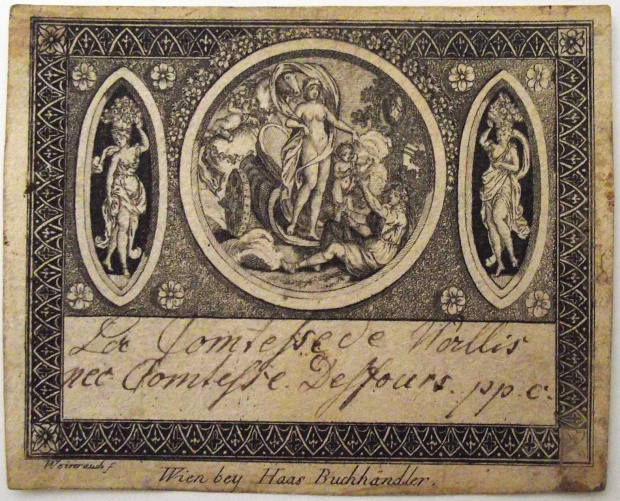 La Comtesse de Wallis
nee Comtesse Desfours. pp.c.
Weinrauch f.
Wien bey Haas Buchhändler.